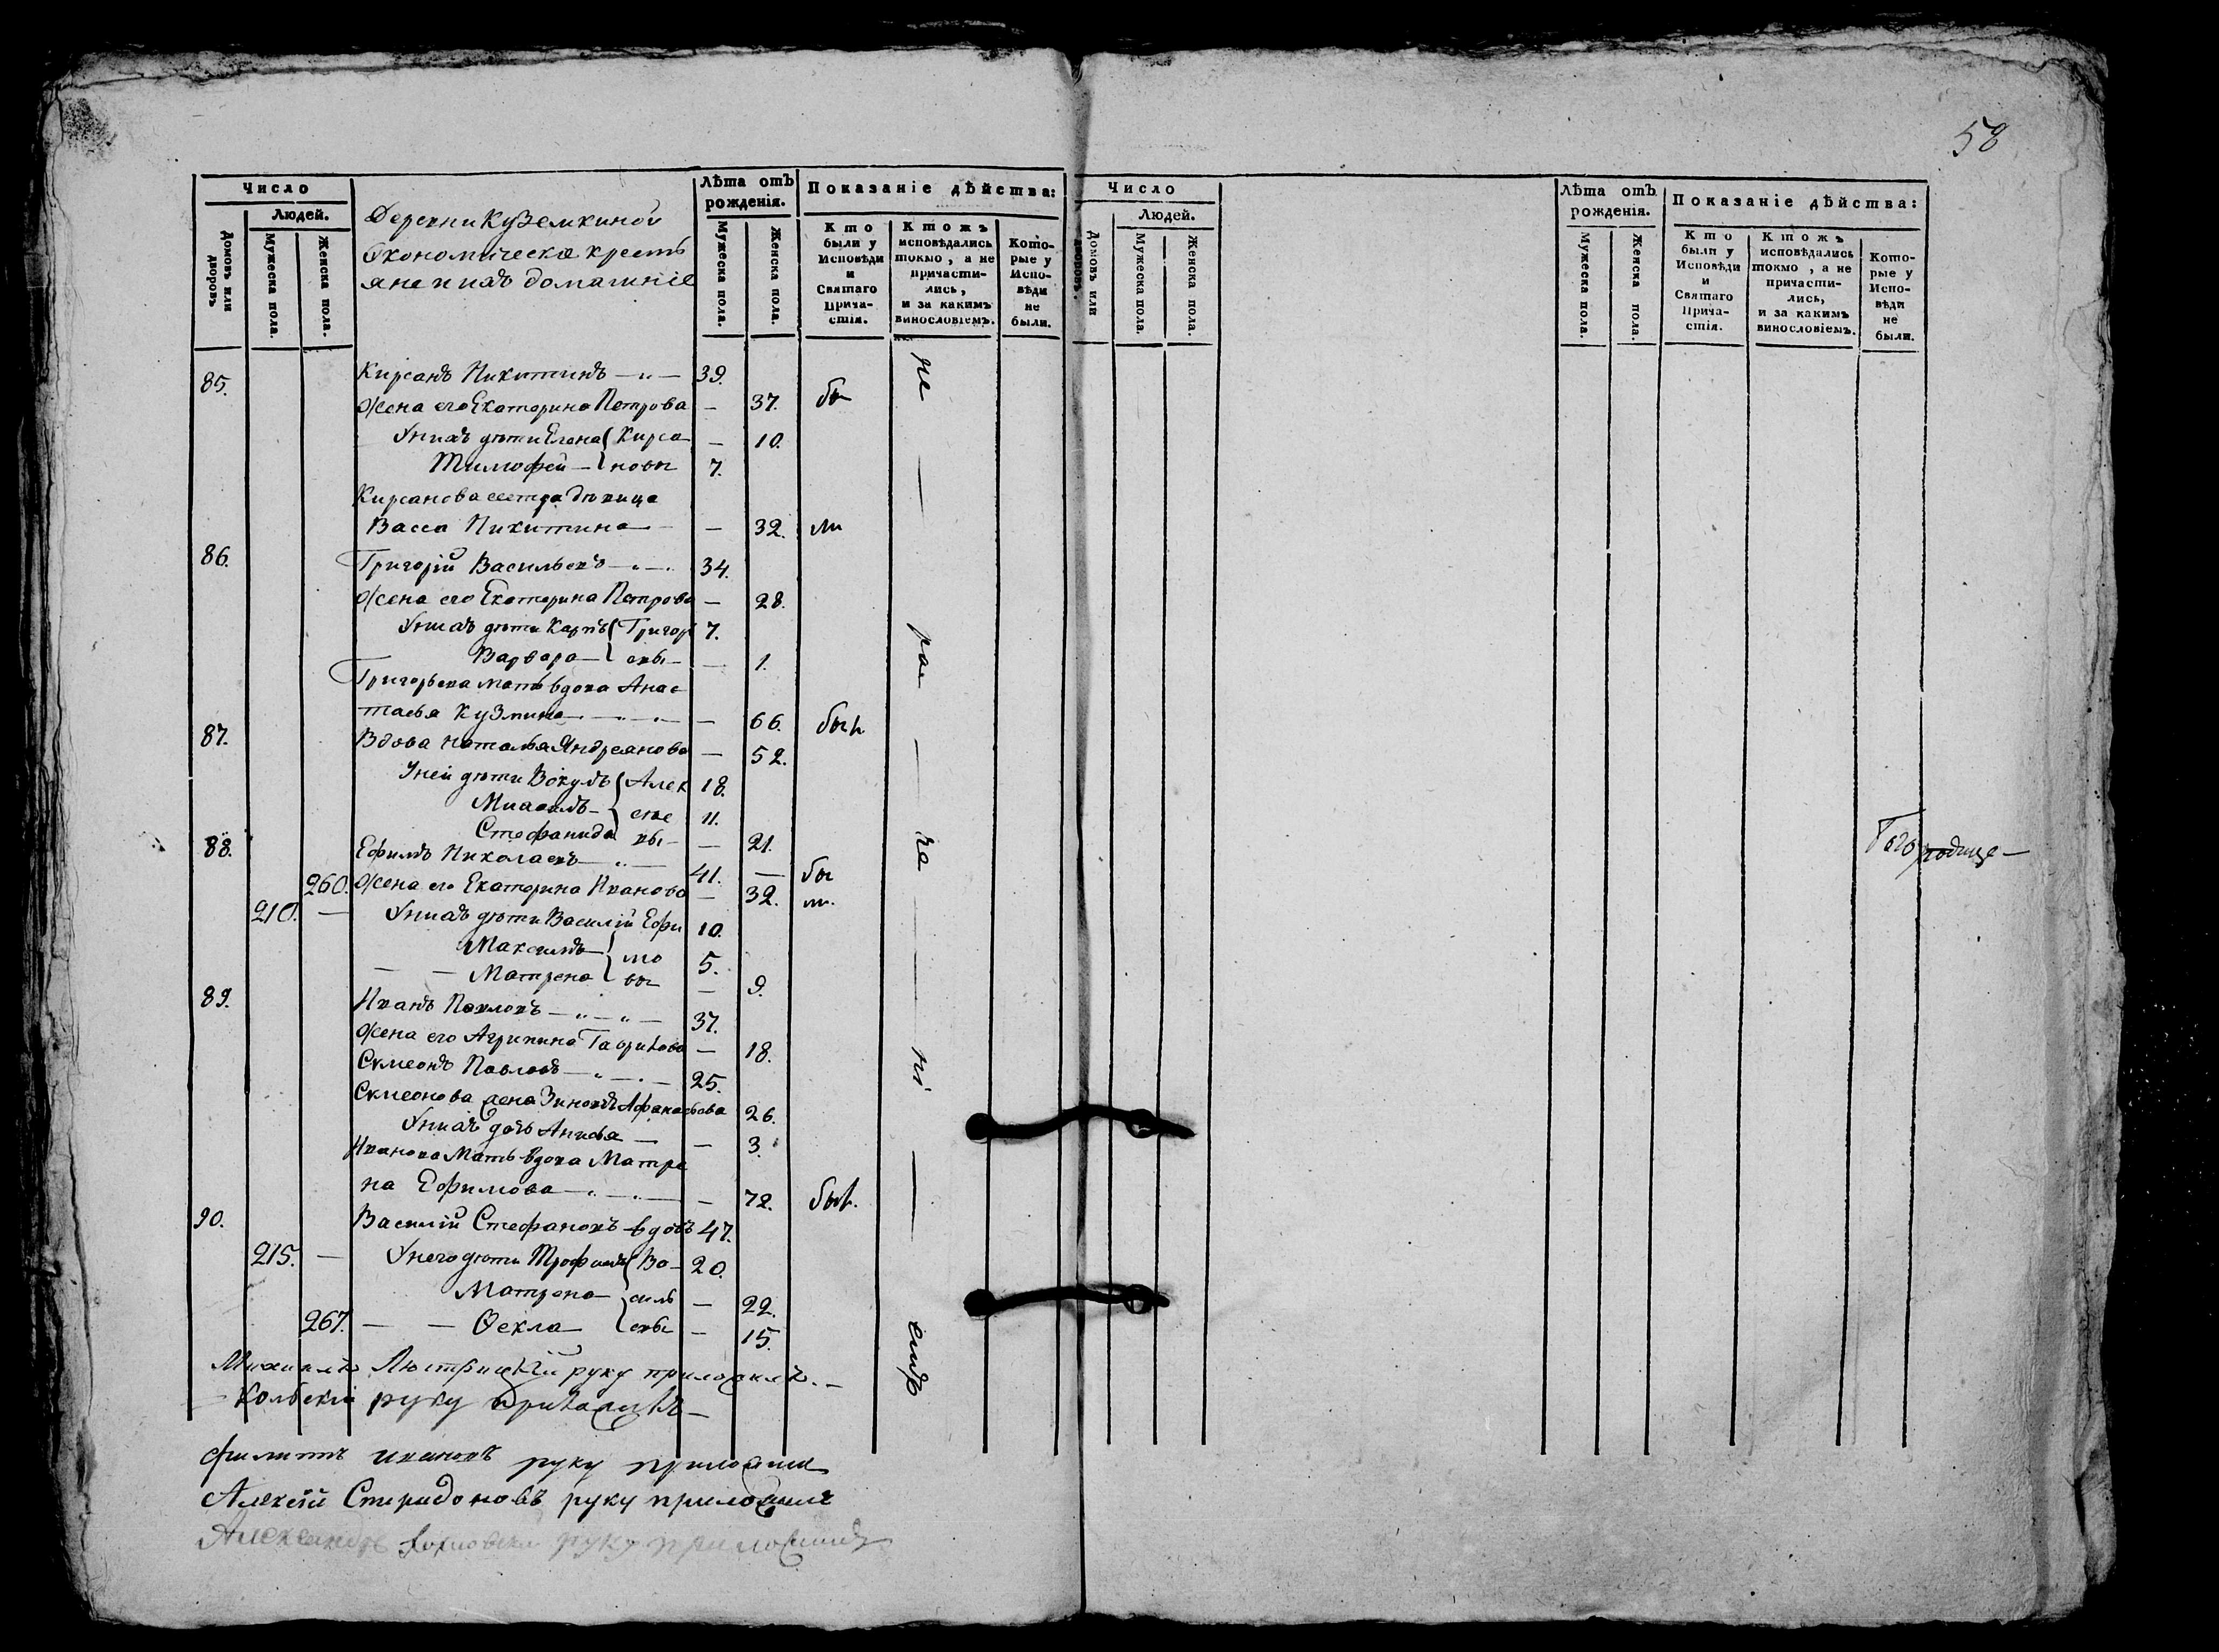 58
Число
Людей.
Домовъ или дворовъ
Мужеска пола.
Женска пола.
Деревни Куземкиной
Економическıе кресть
яне и ихъ домашнıе
Лѣта отъ рожденія.
Мужеска пола.
Женска пола.
Показаніе дѣйства:
Кто были у Исповѣди и Святаго Прича-стія.
Ктожъ исповѣдались токмо, а не причасти-лись, и за какимъ винословіемъ.
Кото-рые у Испо-вѣди не были.
85. Кирсанъ Никитинъ 39.
Жена его Екатерина Петрова — 37. бы
У нихъ дѣти Елена Кирса — 10.
Тимофей — новы 7.
Кирсанова сестра дѣвица
Васса Никитина — 32. ли
86. Григорій Васильевъ 34.
Жена его Екатерина Петрова — 28.
У нихъ дѣти Карпъ Григорь 7.
Варвара — евы — 1.
Григорьева мать вдова Анас
тасья Кузмина — 66. был
87. Вдова Наталья Андреянова — 52.
У ней дѣти Вокулъ Алек 18.
Михаилъ — сѣе 11.
Стефанида вы — 21.
88. Ефимъ Николаевъ 41. — бы
260. Жена его Екатерина Иванова — 32. ли.
210. — У нихъ дѣти Василій Ефи 10.
Максимъ — мо 5.
— — Матрена вы — 9.
89. Иванъ Павловъ 37.
Жена его Агрипина Гаврилова — 18.
Симеонъ Павловъ 25.
Симеонова жена Зиновья Афанасьева 26.
У нихъ дочь Анисья — — 3.
Иванова мать вдова Матре
на Ефимова — 72. был.
90. Василій Стефановъ вдовъ 47.
215. — У него дѣти Трофимъ Ва 20.
Матрена — силь — 22.
267. — — Ѳекла — евы — 15.
не — ра — че — нı — емъ
Михаилъ руку приложилъ. —
руку приложилъ —
Филиппъ Ивановъ руку приложилъ
Алексѣй Спиридоновъ руку приложилъ
Александръ руку приложилъ
Число
Людей.
Домовъ или дворовъ.
Мужеска пола.
Женска пола.
Лѣта отъ рожденія.
Мужеска пола.
Женска пола.
Показаніе дѣйства:
Кто были у Исповѣди и Святаго Прича-стія.
Ктожъ исповѣдались токмо, а не причасти-лись, и за какимъ винословіемъ.
Кото-рые у Испо-вѣди не были.